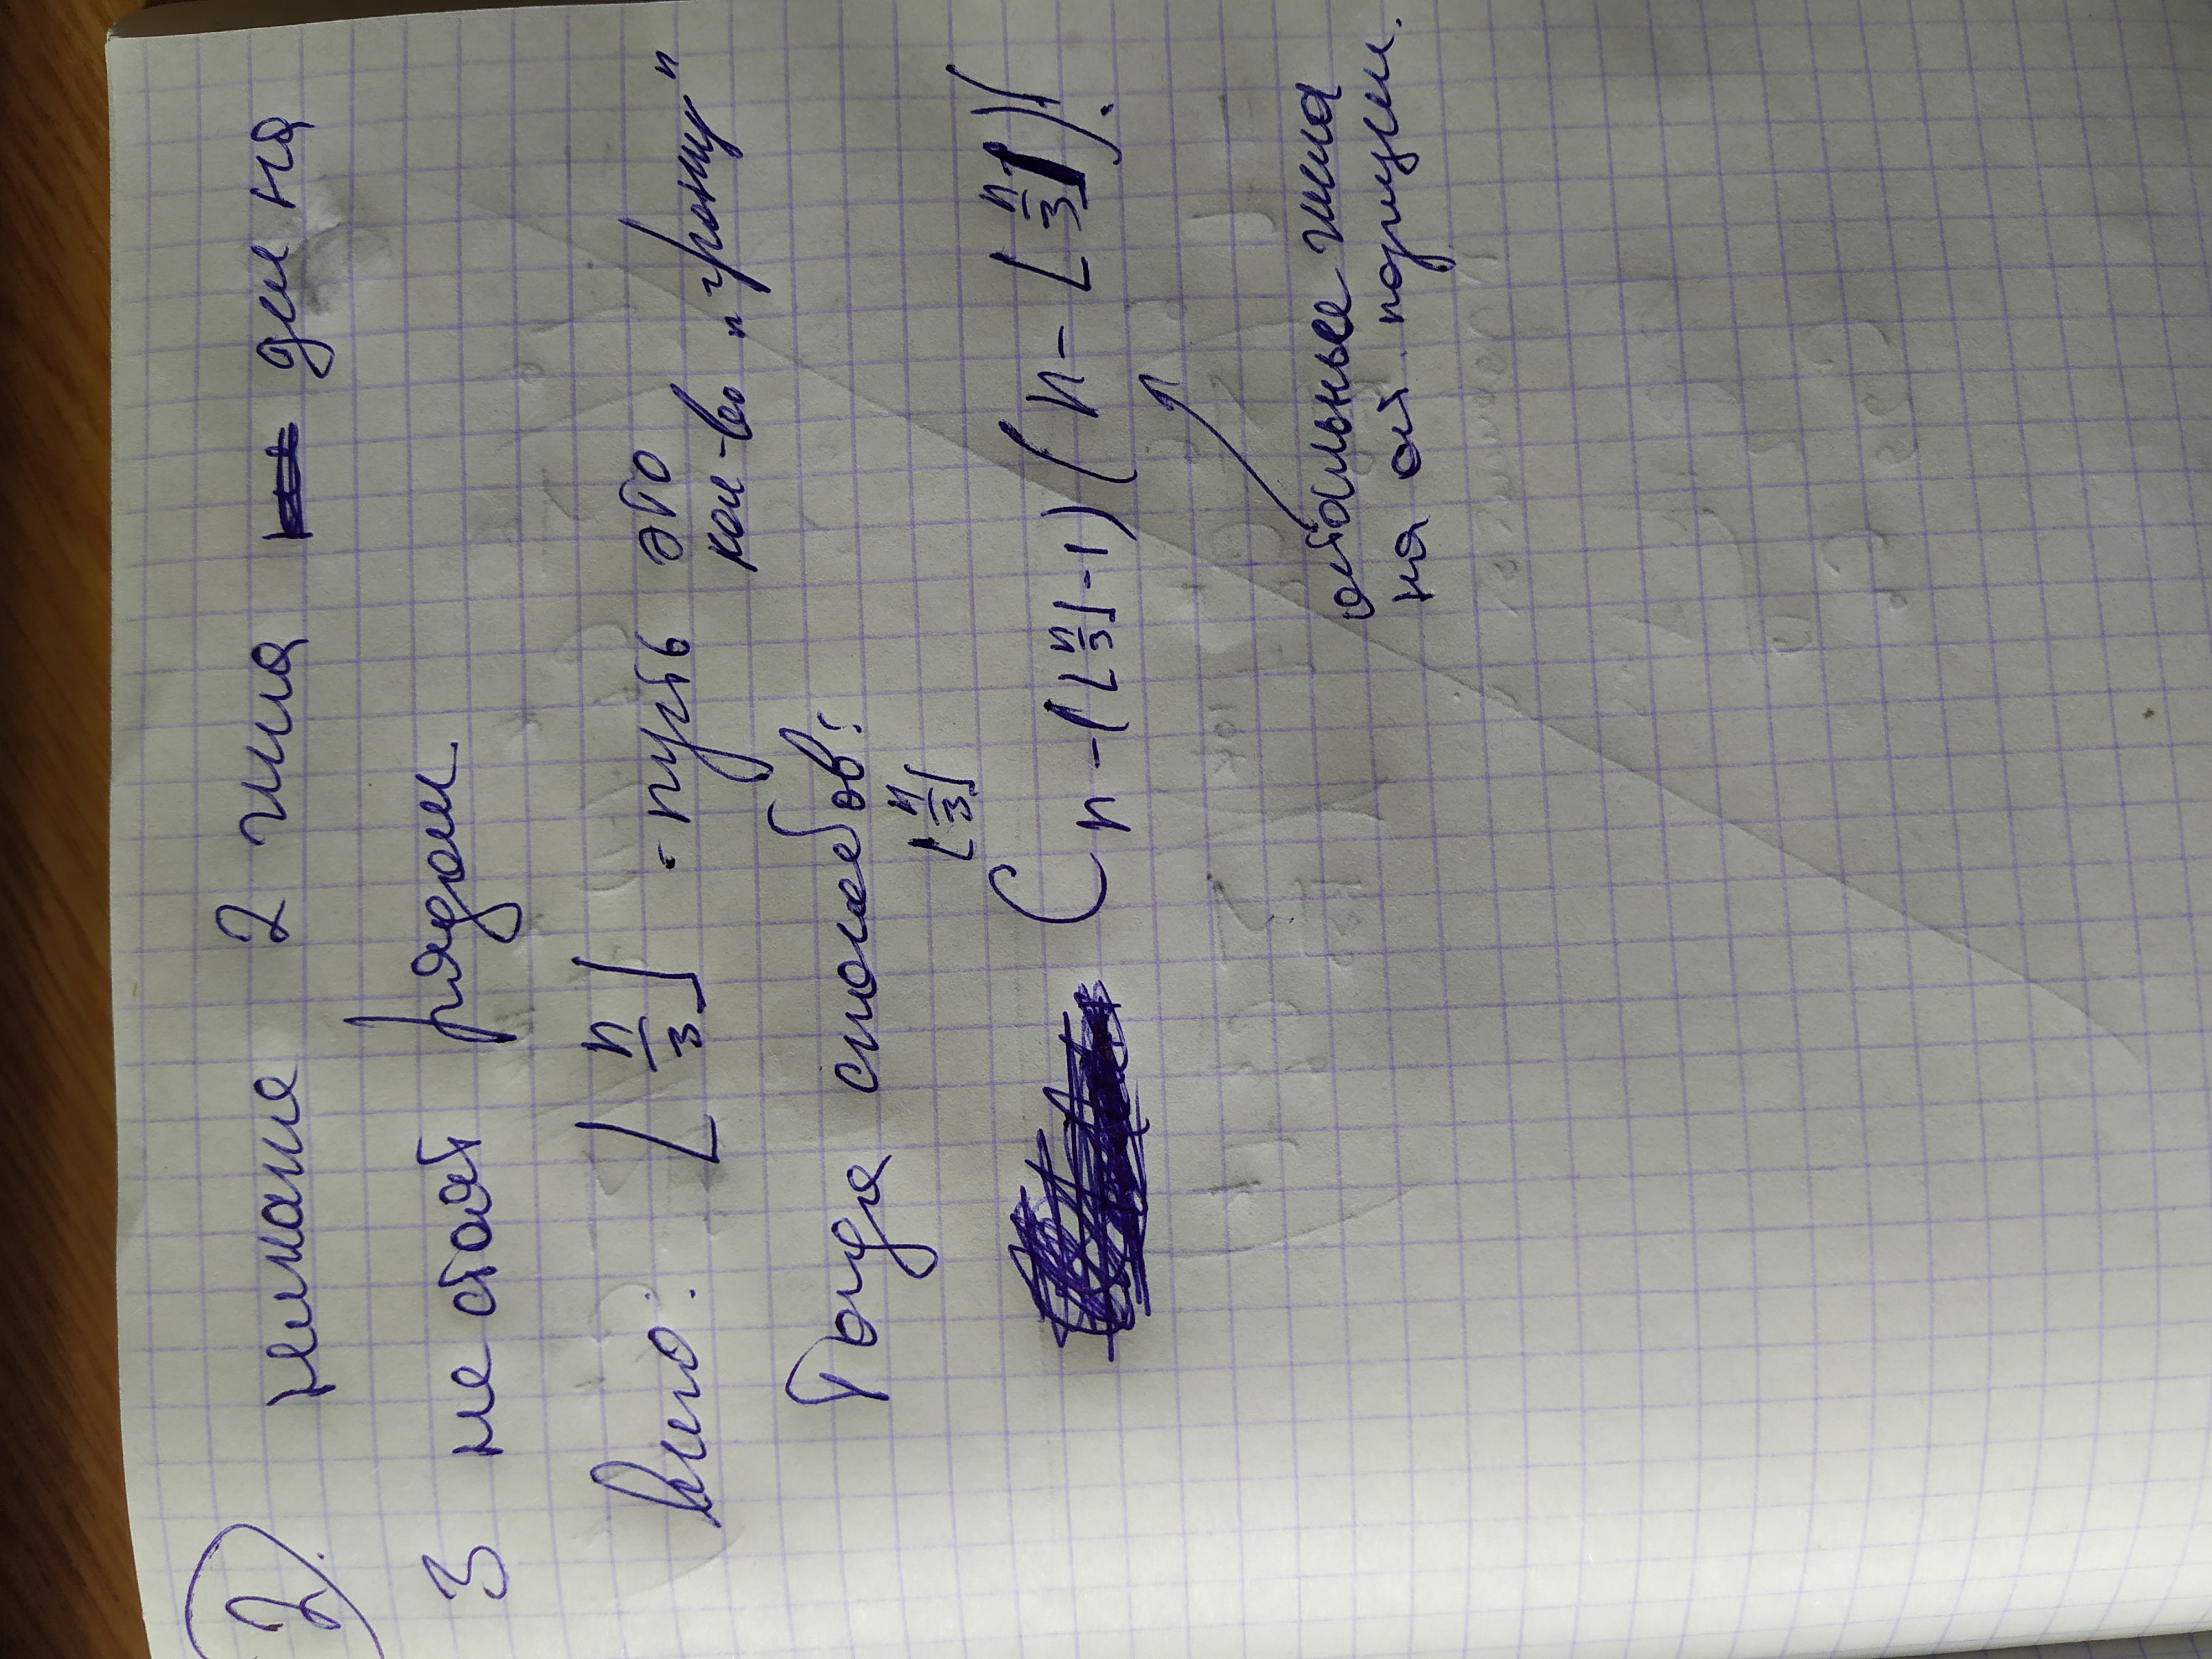 2. никакие 2 числа дел на
3 не стоят рядом
Всего: ⌊n/3⌋ - пусть это
кол-во „границ"
Тогда способов:
C_{n-(⌊n/3⌋-1)}^{⌊n/3⌋} (n-⌊n/3⌋)!
остальные числа
на ост. позиции.